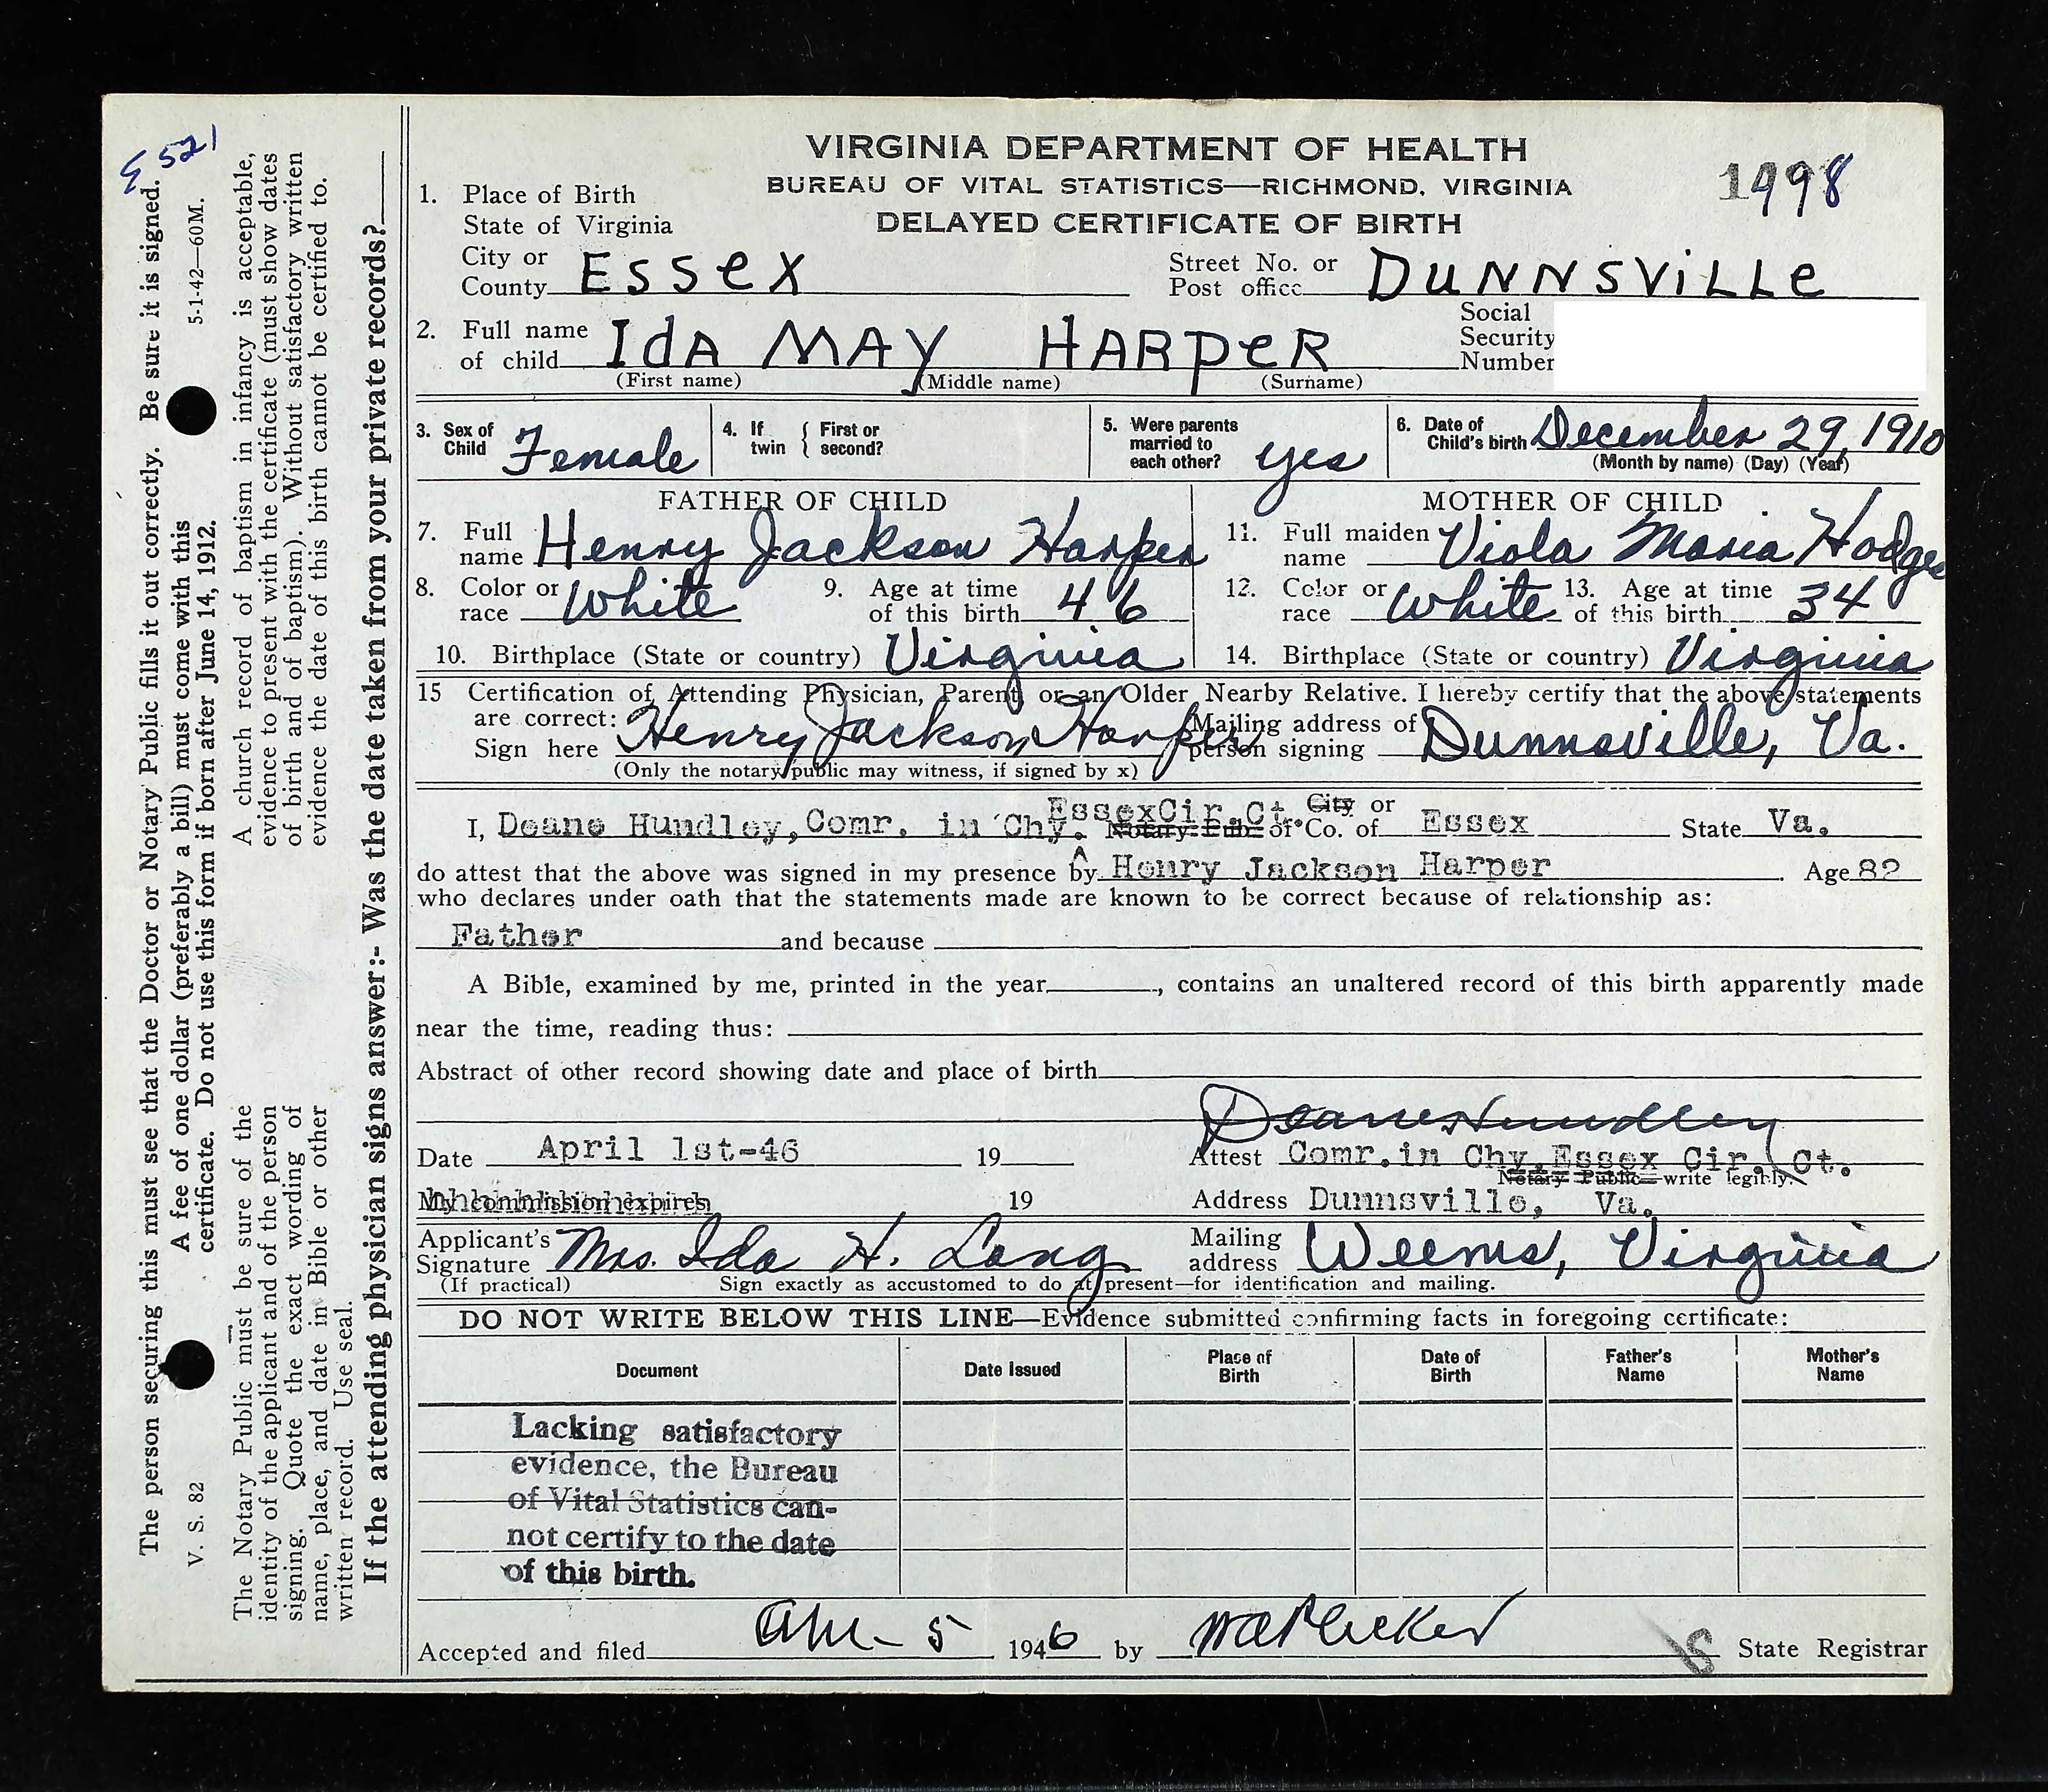 VIRGINIA DEPARTMENT OF HEALTH
BUREAU OF VITAL STATISTICS—RICHMOND, VIRGINIA
DELAYED CERTIFICATE OF BIRTH
1998
1. Place of Birth
State of Virginia
City or County Essex Street No. or Post office Dunnsville
2. Full name of child Ida May Harper Social Security Number
(First name) (Middle name) (Surname)
3. Sex of Child Female 4. If twin { First or second? 5. Were parents married to each other? yes 6. Date of Child's birth December 29, 1910
(Month by name) (Day) (Year)
FATHER OF CHILD MOTHER OF CHILD
7. Full name Henry Jackson Harper 11. Full maiden name Viola Maria Hodges
8. Color or race White 9. Age at time of this birth 46 12. Color or race White 13. Age at time of this birth 34
10. Birthplace (State or country) Virginia 14. Birthplace (State or country) Virginia
15 Certification of Attending Physician, Parent or an Older Nearby Relative. I hereby certify that the above statements
are correct: Sign here Henry Jackson Harper Mailing address of person signing Dunnsville, Va.
(Only the notary public may witness, if signed by x)
I, Deane Hundley, Comr. in Chy. Essex Cir. Ct. Notary Pub. of City or Co. of Essex State Va.
do attest that the above was signed in my presence by Henry Jackson Harper Age 82
who declares under oath that the statements made are known to be correct because of relationship as:
Father and because
A Bible, examined by me, printed in the year, contains an unaltered record of this birth apparently made
near the time, reading thus:
Abstract of other record showing date and place of birth
Deane Hundley
Date April 1st-46 19 Attest Comr. in Chy. Essex Cir. Ct.
Notary Public—write legibly.
My commission expires 19 Address Dunnsville, Va.
Applicant's Signature Mrs. Ida H. Long Mailing address Weems, Virginia
(If practical) Sign exactly as accustomed to do at present—for identification and mailing.
DO NOT WRITE BELOW THIS LINE—Evidence submitted confirming facts in foregoing certificate:
Document Date Issued Place of Birth Date of Birth Father's Name Mother's Name
Lacking satisfactory
evidence, the Bureau
of Vital Statistics can-
not certify to the date
of this birth.
Accepted and filed 5 1946 by W A Plecker State Registrar
521
The person securing this must see that the Doctor or Notary Public fills it out correctly. Be sure it is signed.
A fee of one dollar (preferably a bill) must come with this
certificate. Do not use this form if born after June 14, 1912.
V. S. 82 5-1-42—60M.
The Notary Public must be sure of the
identity of the applicant and of the person
signing. Quote the exact wording of
name, place, and date in Bible or other
written record. Use seal.
A church record of baptism in infancy is acceptable,
evidence to present with the certificate (must show dates
of birth and of baptism). Without satisfactory written
evidence the date of this birth cannot be certified to.
If the attending physician signs answer:- Was the date taken from your private records?